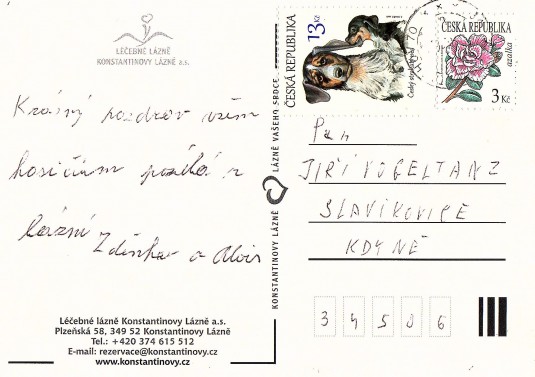 LÉČEBNÉ LÁZNĚ
KONSTANTINOVY LÁZNĚ a.s.
Krásný pozdrav všem
hasičům posílá z
lázní Zdeňka a Alois
Léčebné lázně Konstantinovy Lázně a.s.
Plzeňská 58, 349 52 Konstantinovy Lázně
Tel.: +420 374 615 512
E-mail: rezervace@konstantinovy.cz
www.konstantinovy.cz
KONSTANTINOVY LÁZNĚ LÁZNĚ VAŠEHO SRDCE
ČESKÁ REPUBLIKA
13 Kč
Český strakatý pes
ČESKÁ REPUBLIKA
azalka
3 Kč
Pan
JIŘÍ VOGELTANZ
SLAVÍKOVICE
KDYNĚ
34506